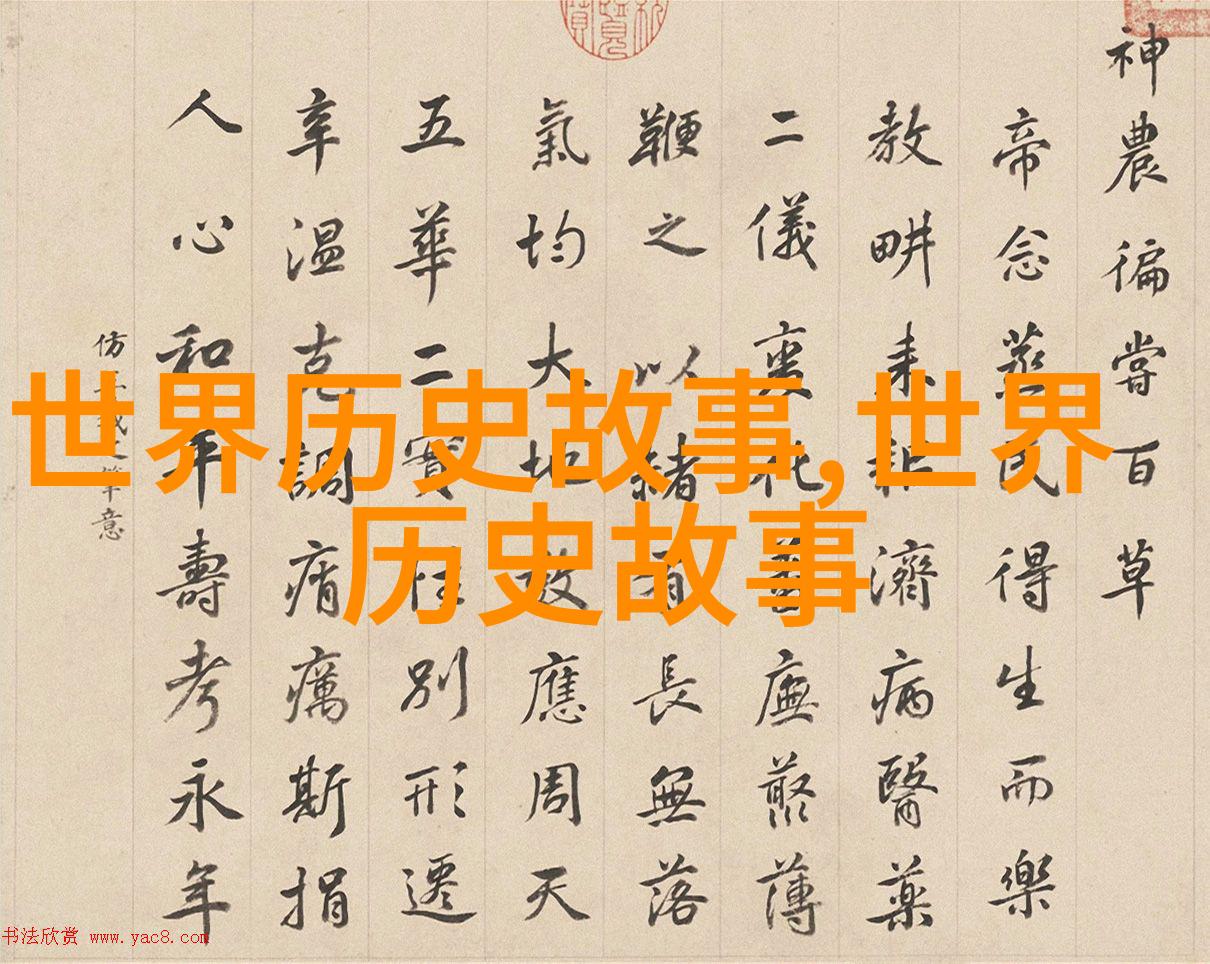 神農徧嘗百草
帝念蒸民得生而樂
教畊耒耜濟病醫藥
二儀薄
鞭之以緒有長無落
氣均大地應周天
五華二實性別形遷
辛温克調痟癘斯捐
人心和平壽考永年
仿筆意
世界历史故事,世界
历史故事
书法欣赏 www.yac8.com